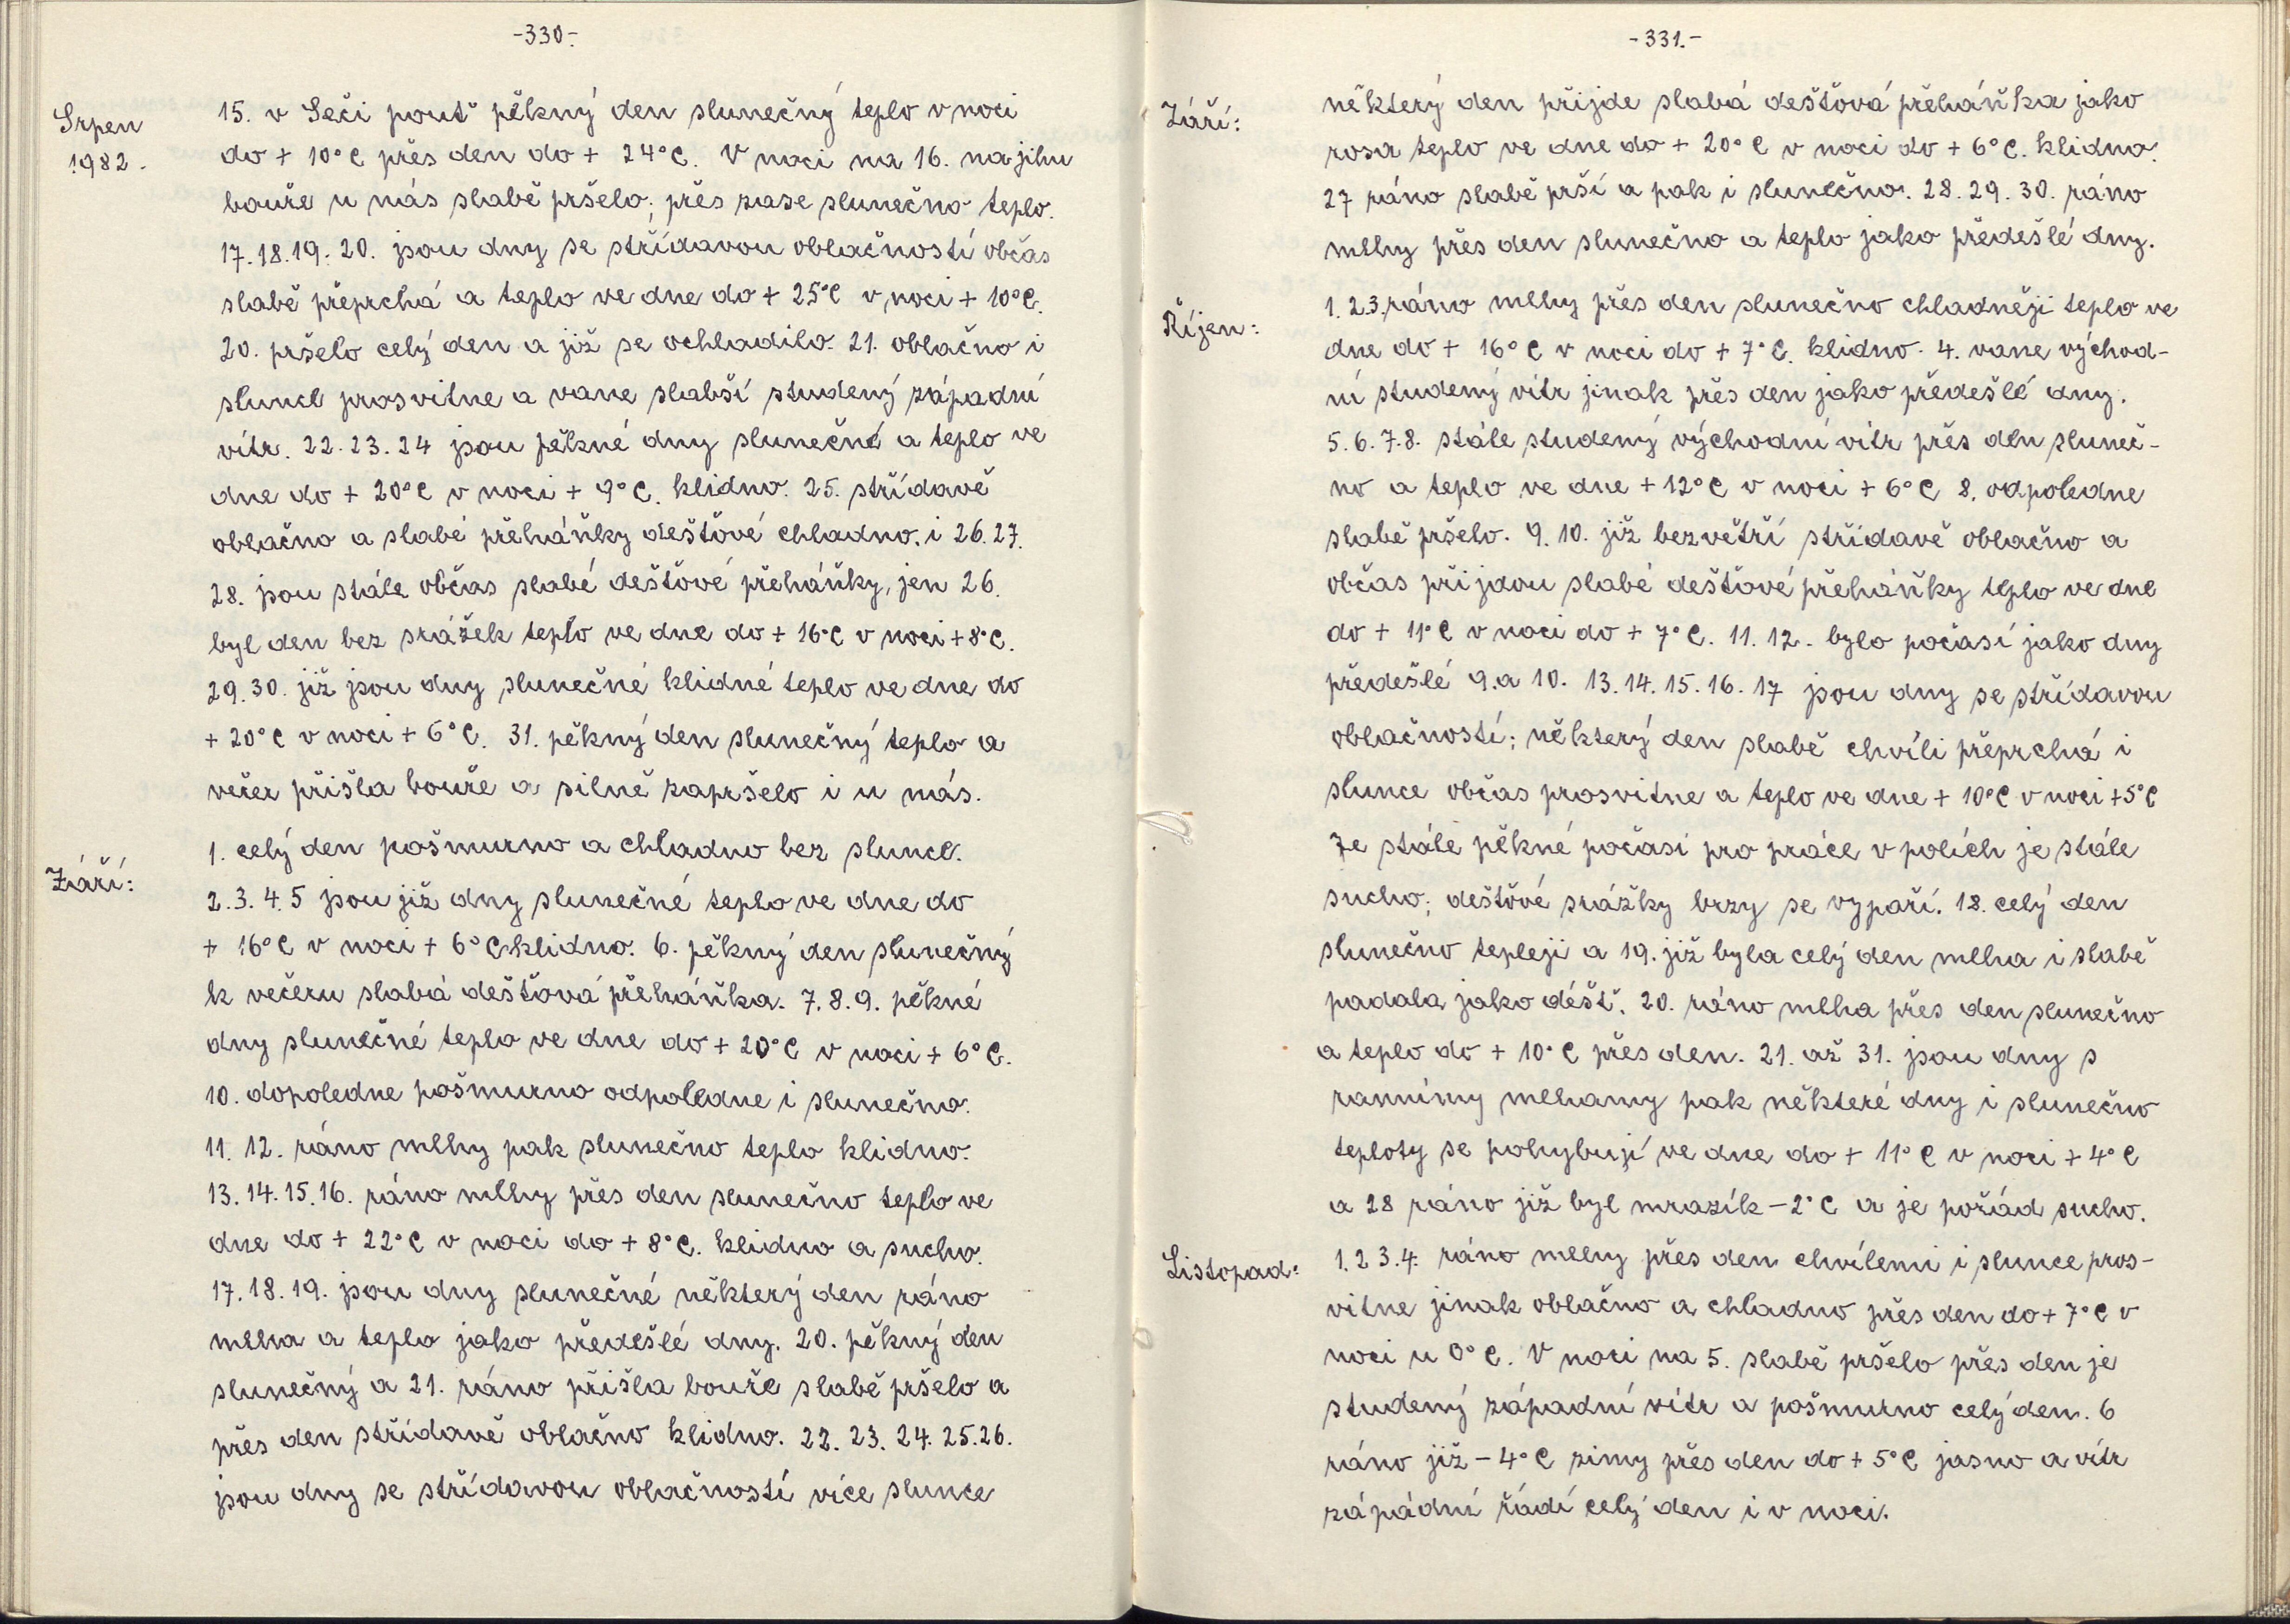 -330-
Srpen
1982.
15. v Seči pouť pěkný den slunečný teplo v noci
do + 10°C přes den do + 24°C. V noci na 16. na jihu
bouře u nás slabě pršelo; přes zase slunečno teplo.
17.18.19.20. jsou dny se střídavou oblačností občas
slabě přeprchá a teplo ve dne do + 25°C v noci + 10°C.
20. pršelo celý den a již se ochladilo. 21. oblačno i
slunce prosvitne a vane slabší studený západní
vítr. 22.23.24 jsou pěkné dny slunečné a teplo ve
dne do + 20°C v noci + 9°C. klidno. 25. střídavě
oblačno a slabé přeháňky dešťové chladno. i 26.27.
28. jsou stále občas slabé dešťové přeháňky, jen 26.
byl den bez srážek teplo ve dne do + 16°C v noci + 8°C.
29.30. již jsou dny slunečné klidné teplo ve dne do
+ 20°C v noci + 6°C. 31. pěkný den slunečný teplo a
večer přišla bouře a silně zapršelo i u nás.
Září:
1. celý den pošmurno a chladno bez slunce.
2.3.4.5 jsou již dny slunečné teplo ve dne do
+ 16°C v noci + 6°C klidno. 6. pěkný den slunečný
k večeru slabá dešťová přeháňka. 7.8.9. pěkné
dny slunečné teplo ve dne do + 20°C v noci + 6°C.
10. dopoledne pošmurno odpoledne i slunečno.
11. 12. ráno mlhy pak slunečno teplo klidno.
13.14.15.16. ráno mlhy přes den slunečno teplo ve
dne do + 22°C v noci do + 8°C. klidno a sucho.
17.18.19. jsou dny slunečné některý den ráno
mlha a teplo jako předešlé dny. 20. pěkný den
slunečný a 21. ráno přišla bouře slabě pršelo a
přes den střídavě oblačno klidno. 22. 23. 24. 25.26.
jsou dny se střídavou oblačností více slunce
-331.-
Září:
některý den přijde slabá dešťová přeháňka jako
rosa teplo ve dne do + 20°C v noci do + 6°C. klidno.
27 ráno slabě prší a pak i slunečno. 28.29.30. ráno
mlhy přes den slunečno a teplo jako předešlé dny.
Říjen:
1. 2.3. ráno mlhy přes den slunečno chladněji teplo ve
dne do + 16°C v noci do + 7°C. klidno. 4. vane východ-
ní studený vítr jinak přes den jako předešlé dny.
5.6.7.8. stále studený východní vítr přes den sluneč-
no a teplo ve dne + 12°C v noci + 6°C 8. odpoledne
slabě pršelo. 9.10. již bezvětří střídavě oblačno a
občas přijdou slabé dešťové přeháňky teplo ve dne
do + 11°C v noci do + 7°C. 11. 12. bylo počasí jako dny
předešlé 9.a 10. 13.14.15.16.17 jsou dny se střídavou
oblačností; některý den slabě chvíli přeprchá i
slunce občas prosvitne a teplo ve dne + 10°C v noci +5°C
Je stále pěkné počasí pro práce v polích je stále
sucho; dešťové srážky brzy se vypaří. 18. celý den
slunečno tepleji a 19. již byla celý den mlha i slabě
padala jako déšť. 20. ráno mlha přes den slunečno
a teplo do + 10°C přes den. 21. až 31. jsou dny s
ranními mlhamy pak některé dny i slunečno
teploty se pohybují ve dne do + 11°C v noci + 4°C
a 28 ráno již byl mrazík - 2°C a je pořád sucho.
Listopad:
1.2 3.4. ráno mlhy přes den chvílemi i slunce pros-
vitne jinak oblačno a chladno přes den do + 7°C v
noci u 0°C. V noci na 5. slabě pršelo přes den je
studený západní vítr a pošmurno celý den. 6
ráno již - 4°C zimy přes den do + 5°C jasno a vítr
západní řádí celý den i v noci.